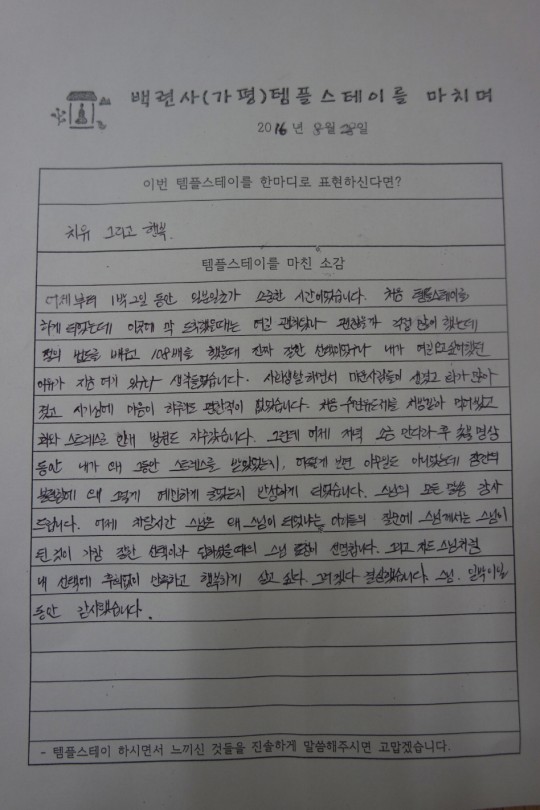 백련사(가평)템플스테이를 마치며
2016년 8월 28일
이번 템플스테이를 한마디로 표현하신다면?
치유 그리고 행복.
템플스테이를 마친 소감
어제부터 1박2일 동안 일분일초가 소중한 시간이었습니다. 처음 템플스테이를
하게 되었는데 이곳에 막 도착했을때는 여길 괜히왔나 괜찮을까 걱정 많이 했는데
절의 법도를 배우고 108배를 했을때 진짜 잘한 선택이었구나 내가 여길오고싶어했던
이유가 지금 여기 있구나 생각들었습니다. 사회생활 하면서 미운사람들이 생겼고 화가 많아
졌고 시기심에 마음이 하루도 편한적이 없었습니다. 처음 우연드레를 처방받아 먹어봤고
화와 스트레스로 인해 밤잠도 자주깼습니다. 그런데 어제 저녁 소금 만다라 후 촛불 명상
동안 내가 왜 그동안 스트레스를 받았었는지, 어떻게 보면 아무일도 아니었는데 잠깐의
불편함에 왜 그렇게 예민하게 굴었는지 반성하게 되었습니다. 스님의 모든 말씀 감사
드립니다. 어제 차담시간 스님은 왜 스님이 되었냐는 아이들의 질문에 스님께서는 스님이
된것이 가장 잘한 선택이라 답하셨을때의 스님 표정이 선명합니다. 그리고 저도 스님처럼
내 선택에 후회없이 만족하고 행복하게 살고 싶다. 그러겠다 결심했습니다. 스님, 일박이일
동안 감사했습니다.
- 템플스테이 하시면서 느끼신 것들을 진솔하게 말씀해주시면 고맙겠습니다.